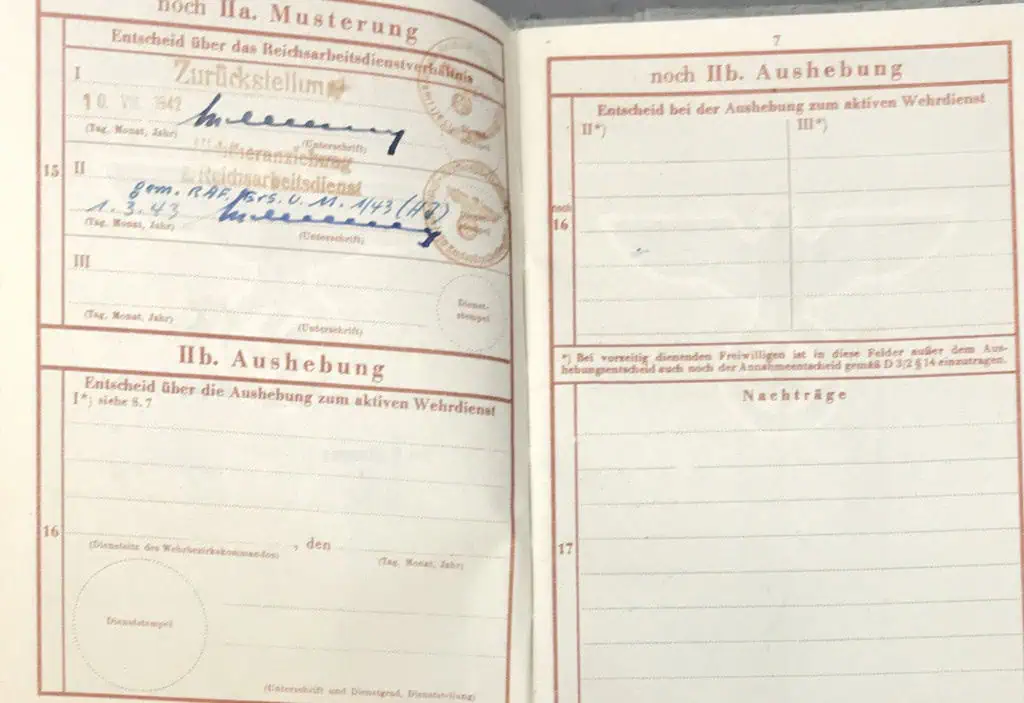 noch IIa. Musterung
Entscheid über das Reichsarbeitsdienstverhältnis
I
Zurückstellung
10. VIII. 1942
(Tag, Monat, Jahr)
(Unterschrift)
15
II
Nichtheranziehung
z. Reichsarbeitsdienst
gem. RAF. Ers. v. M. 1/43 (HJ)
1.3.43
(Tag, Monat, Jahr)
(Unterschrift)
III
(Tag, Monat, Jahr)
(Unterschrift)
Dienst-
stempel
IIb. Aushebung
Entscheid über die Aushebung zum aktiven Wehrdienst
I*) siehe S. 7
16
(Dienstsitz des Wehrbezirkskommandos)
, den
(Tag, Monat, Jahr)
Dienststempel
(Unterschrift und Dienstgrad, Dienststellung)
7
noch IIb. Aushebung
Entscheid bei der Aushebung zum aktiven Wehrdienst
II*)
III*)
noch
16
*) Bei vorzeitig dienenden Freiwilligen ist in diese Felder außer dem Aus-
hebungsentscheid auch noch der Annahmeentscheid gemäß D 3/2 § 14 einzutragen.
Nachträge
17